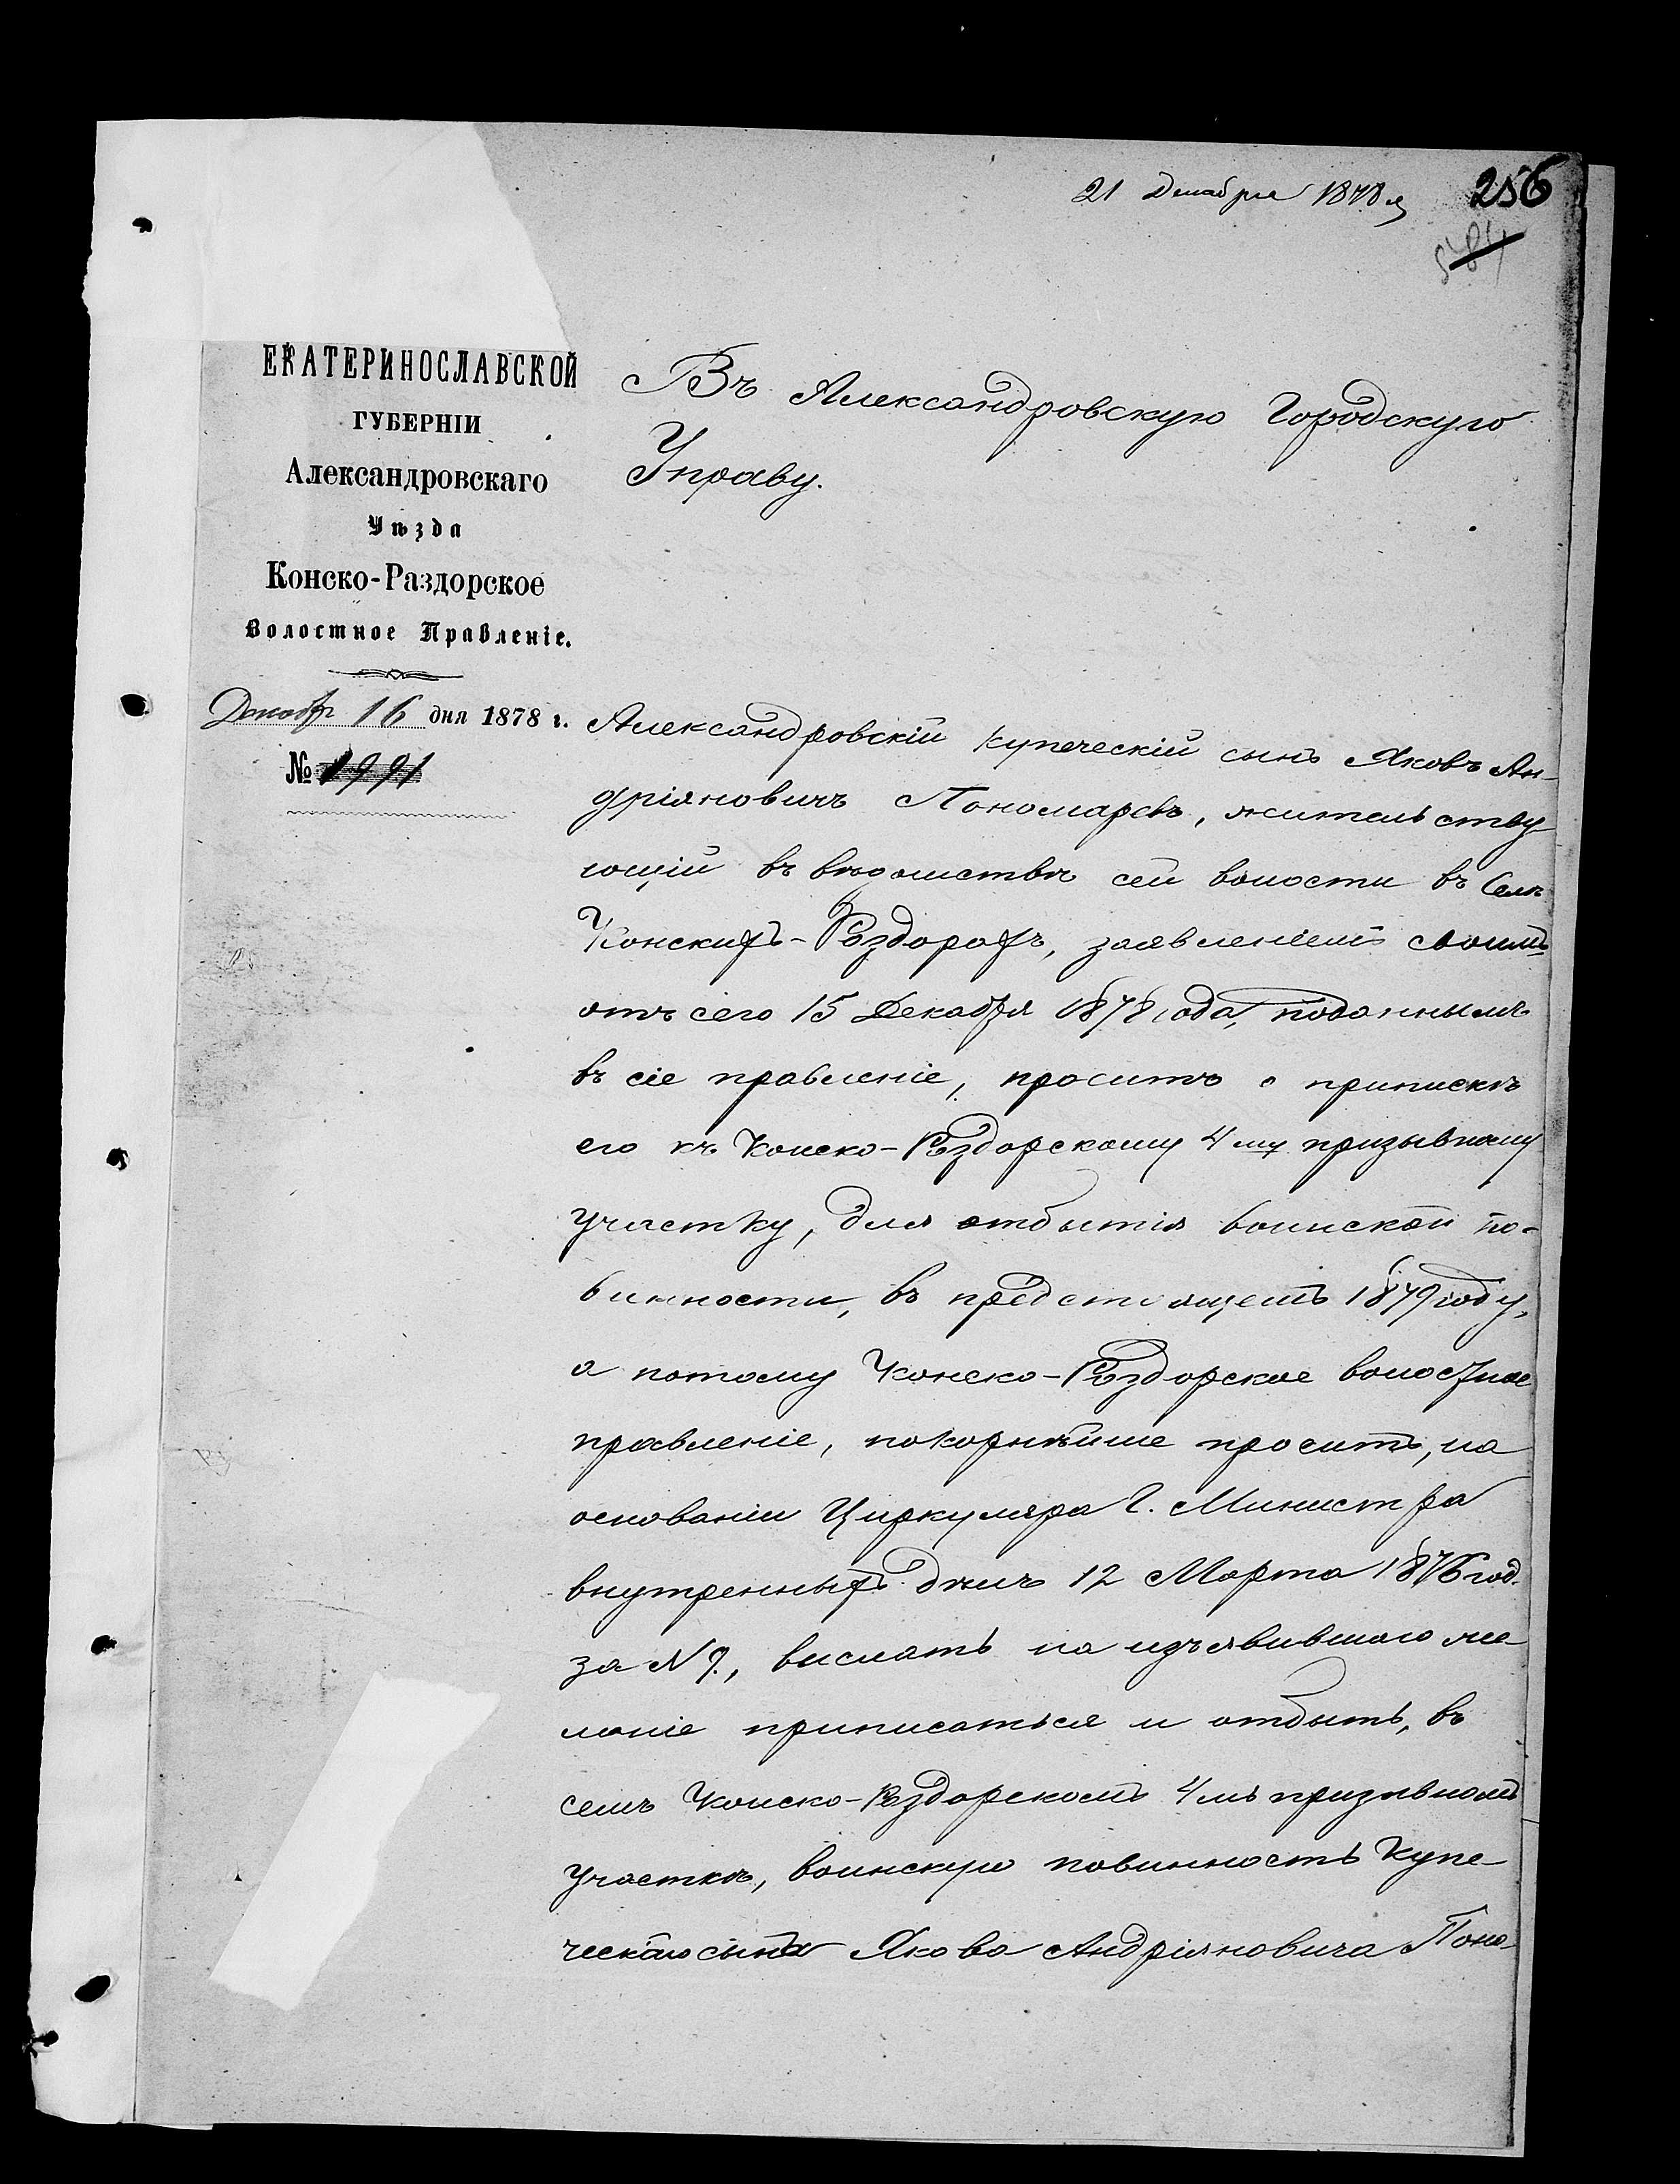 21 Декабря 1878 г
256
584
ЕКАТЕРИНОСЛАВСКОЙ
ГУБЕРНІИ
Александровскаго
Уѣзда
Конско-Раздорское
Волостное Правленіе.
Декабр 16 дня 1878 г.
№ 1991
Въ Александровскую Городскую
Управу.
Александровскій купеческій сынъ Яковъ Ан-
дріяновичъ Пономаревъ, жительству
ющій въ вѣдомствѣ сей волости въ Селѣ
Конскихъ-Раздорахъ, заявленіемъ своимъ
отъ сего 15 Декабря 1878 года, поданнымъ
въ сіе правленіе, проситъ о припискѣ
его къ Конско-Раздорскому 4 му призывному
участку, для отбытія воинской по-
винности, въ предстоящемъ 1879 году,
а потому Конско-Раздорское волостное
правленіе, покорнѣйше проситъ, на
основаніи Циркуляра Г. Министра
внутренныхъ дѣлъ 12 Марта 1876 год.
за № 9., выслать на изъявившаго же
ланіе приписаться и отбыть, въ
семъ Конско-Раздорскомъ 4 мъ призывномъ
участкѣ, воинскую повинность Купе-
ческаго сына Якова Андріяновича Поно-